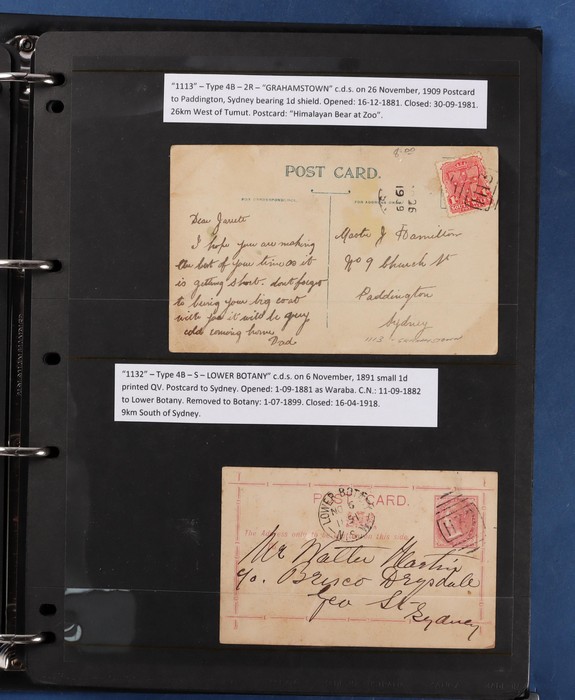 "1113" – Type 4B – 2R – "GRAHAMSTOWN" c.d.s. on 26 November, 1909 Postcard
to Paddington, Sydney bearing 1d shield. Opened: 16-12-1881. Closed: 30-09-1981.
26km West of Tumut. Postcard: "Himalayan Bear at Zoo".
POST CARD.
FOR CORRESPONDENCE.
FOR ADDRESS ONLY.
Dear Jarrett
I hope you are making
the best of your time as it
is getting short. dont forget
to bring your big coat
with you it will be very
cold coming home
Dad
Master J Hamilton
No 9 Church St
Paddington
Sydney
1113
"1132" – Type 4B – S – LOWER BOTANY" c.d.s. on 6 November, 1891 small 1d
printed QV. Postcard to Sydney. Opened: 1-09-1881 as Waraba. C.N.: 11-09-1882
to Lower Botany. Removed to Botany: 1-07-1899. Closed: 16-04-1918.
9km South of Sydney.
POST CARD.
LOWER BOT
NO 6
N.S.W
The Address only to be written on this side
Mr Walter Martin
c/o. Brisco Drysdale
Geo St
Sydney